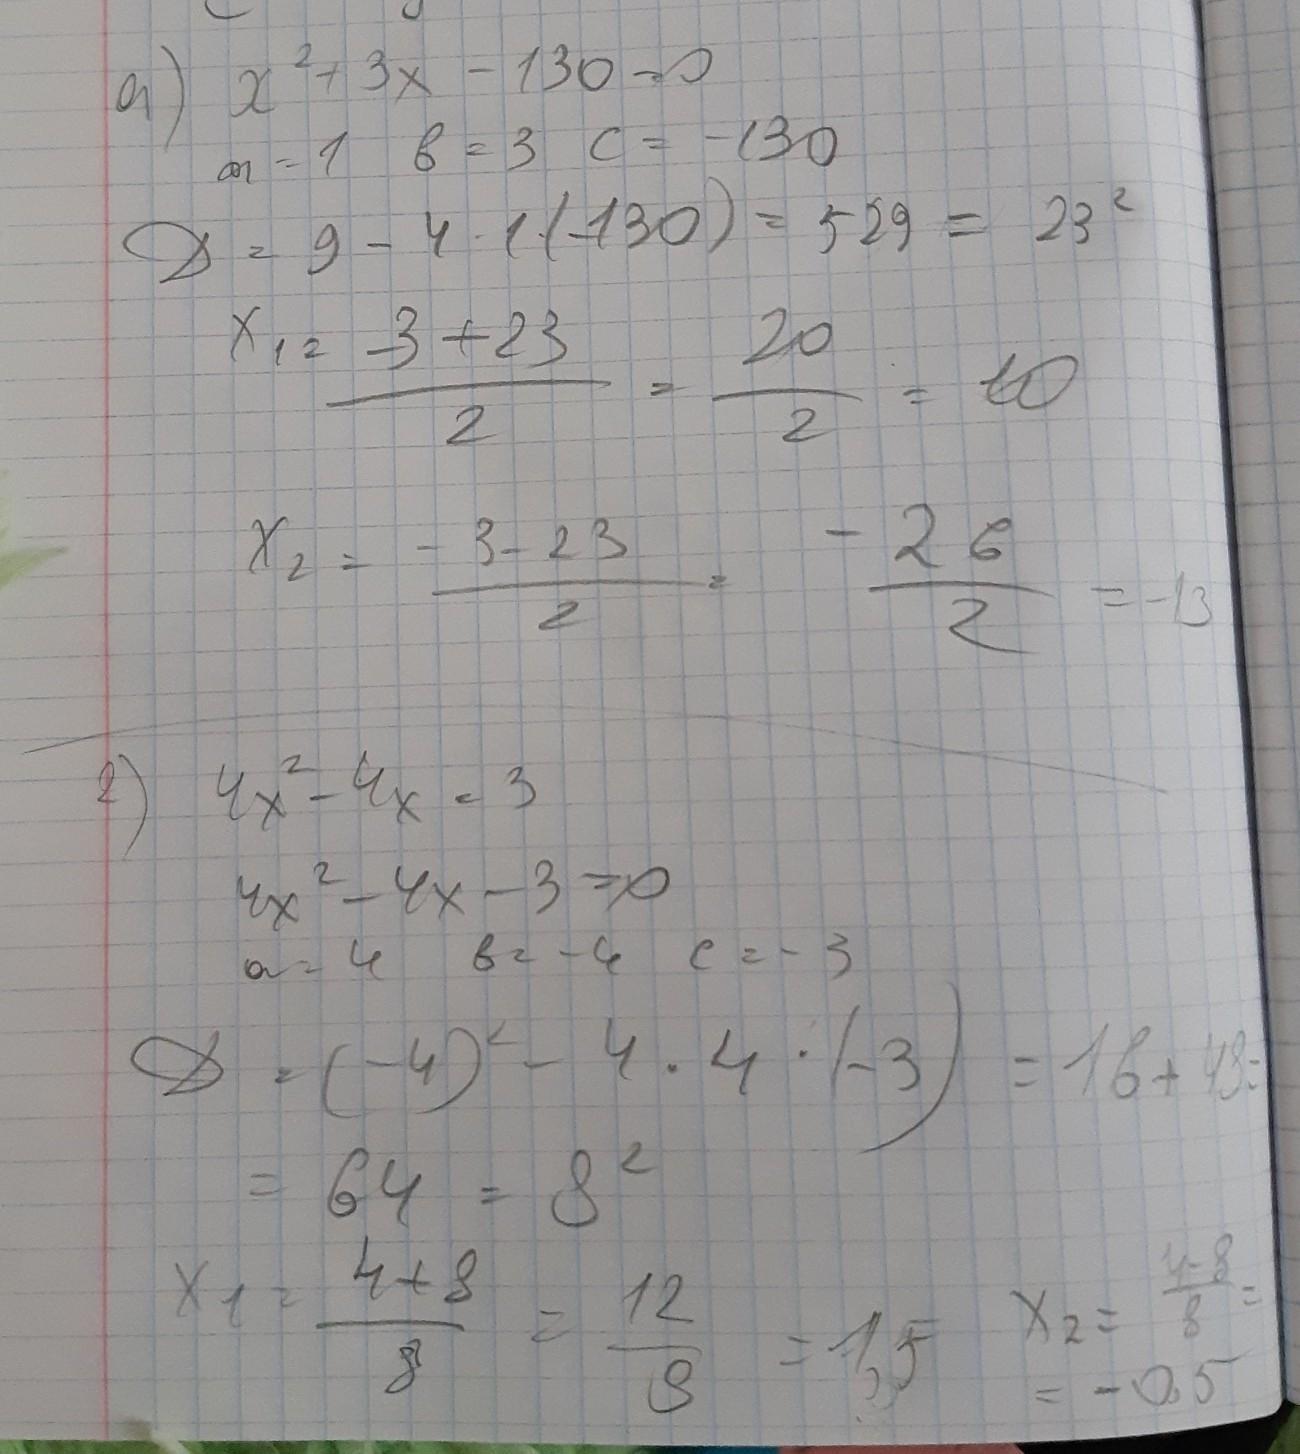 а) x² + 3x - 130 = 0
a = 1 b = 3 c = -130
D = 9 - 4 · 1 · (-130) = 529 = 23²
x₁ = (-3 + 23)/2 = 20/2 = 10
x₂ = (-3 - 23)/2 = -26/2 = -13
2) 4x² - 4x = 3
4x² - 4x - 3 = 0
a = 4 b = -4 c = -3
D = (-4)² - 4 · 4 · (-3) = 16 + 48 =
= 64 = 8²
x₁ = (4 + 8)/8 = 12/8 = 1,5 x₂ = (4 - 8)/8 =
= -0,5